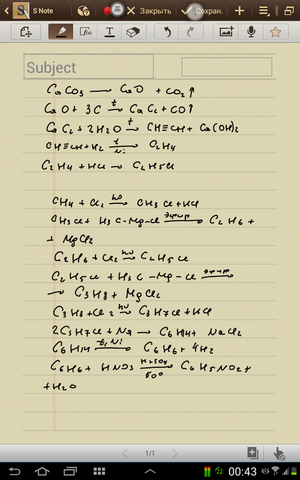 S Note
Закрыть
Сохран.
Subject
CaCO₃ → CaO + CO₂↑
CaO + 3C →t CaC₂ + CO↑
CaC₂ + 2H₂O →t CH≡CH + Ca(OH)₂
CH≡CH + H₂ →t Ni C₂H₄
C₂H₄ + HCl → C₂H₅Cl
CH₄ + Cl₂ →hν CH₃Cl + HCl
CH₃Cl + H₃C-Mg-Cl →эфир C₂H₆ +
+ MgCl₂
C₂H₆ + Cl₂ →hν C₂H₅Cl
C₂H₅Cl + H₃C-Mg-Cl →эфир
→ C₃H₈ + MgCl₂
C₃H₈ + Cl₂ →hν C₃H₇Cl + HCl
2C₃H₇Cl + Na → C₆H₁₄ + NaCl₂
C₆H₁₄ →t, Ni C₆H₆ + 4H₂
C₆H₆ + HNO₃ →H₂SO₄ 50° C₆H₅NO₂ +
+ H₂O
1/1
00:43